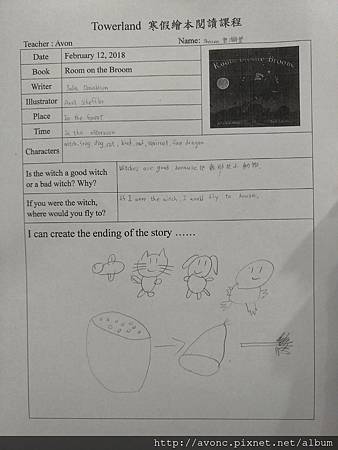 Towerland 寒假繪本閱讀課程
Teacher : Avon Name:
Date February 12, 2018
Book Room on the Broom
Writer Julia Donaldson
Illustrator Axel Sheffler
Place In the forest
Time In the afternoon
Characters witch, frog, dog, cat, bird, bat, squirrel, fire dragon
Is the witch a good witch or a bad witch? Why? Witches are good because
If you were the witch, where would you fly to? If I were the witch, I would fly to
I can create the ending of the story ……
http://avonc.pixnet.net/album